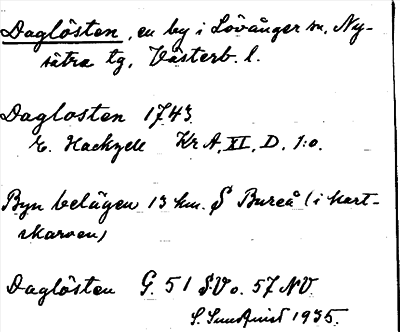 Daglösten, en by i Lövånger sn, Ny-
sätra tg, Västerb. l.
Daglosten 1743.
E. Hackzell Kr A, XI, D, 1:o.
Byn belägen 13 km. S Bureå (i kart-
skarven)
Daglösten G. 51 SV o. 57 NV
S. Sundqvist 1935.